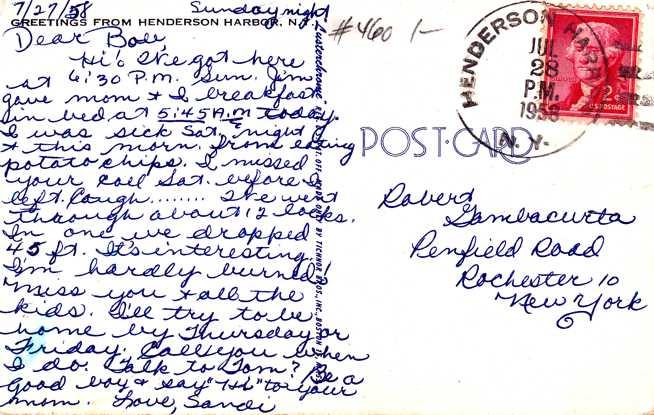 7/27/58 Sunday night
GREETINGS FROM HENDERSON HARBOR, N.Y.
Dear Bob,
Hi! I've got here
at 6:30 P.M. Sun. Jim
gave mom & I breakfast
in bed at 5:45 A.M today.
I was sick Sat. night
& this morn. from eating
potato chips. I missed
your call Sat. before I
left. Laugh........ I've went
through about 12 locks.
In one we dropped
45 ft. It's interesting.
I'm hardly burned!
Miss you & all the
kids. I'll try to be
home by Thursday or
Friday. Call you when
I do. Talk to Tom? Be a
good boy & say "Hi" to your
mom. Love, Sandi
#460 1-
POST-CARD
HENDERSON HARBOR
JUL
28
P.M.
1958
N.Y.
2¢
U.S. POSTAGE
Robert
Gambacurta
Penfield Road
Rochester 10
New York